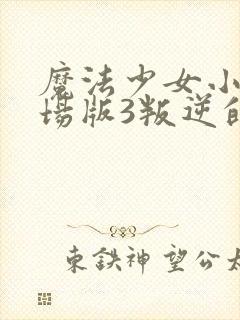 魔法少女小
场版3叛逆的
東鉄神望公太